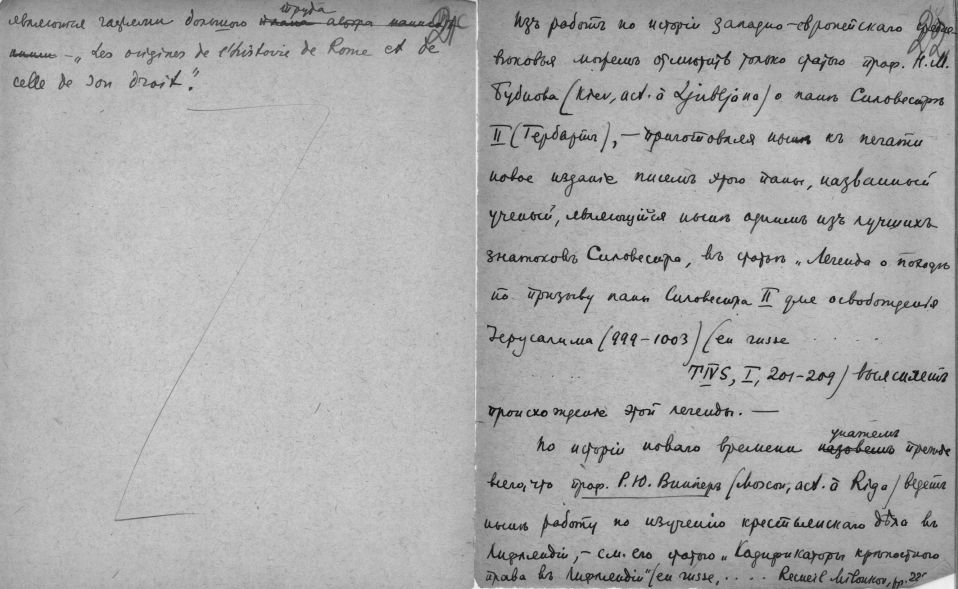 являются частями большого труда
„Les origines de l'histoire de Rome et de
celle de son droit."
Изъ работъ по исторіи западно-европейскаго средне
вѣковья можемъ отмѣтить только статью проф. Н.М.
Бубнова (Kiev, act. à Ljubljana) о папѣ Сильвестрѣ
II (Гербертѣ), — приготовляя нынѣ къ печати
новое изданіе писемъ этого папы, названный
ученый, являющійся нынѣ однимъ изъ лучшихъ
знатоковъ Сильвестра, въ статьѣ „Легенда о походѣ
по призыву папы Сильвестра II для освобожденія
Іерусалима (999-1003) (en russe . . . . .
TIVS, I, 201-209) выясняетъ
происхожденіе этой легенды. —
По исторіи новаго времени укажемъ прежде
всего, что проф. Р.Ю. Випперъ (Moscou, act. à Riga) ведетъ
нынѣ работу по изученію крестьянскаго дѣла въ
Лифляндіи, - см. его статью „Кодификаторы крѣпостного
права въ Лифляндіи" (en russe, . . . . Recueil Milioukov, pp.